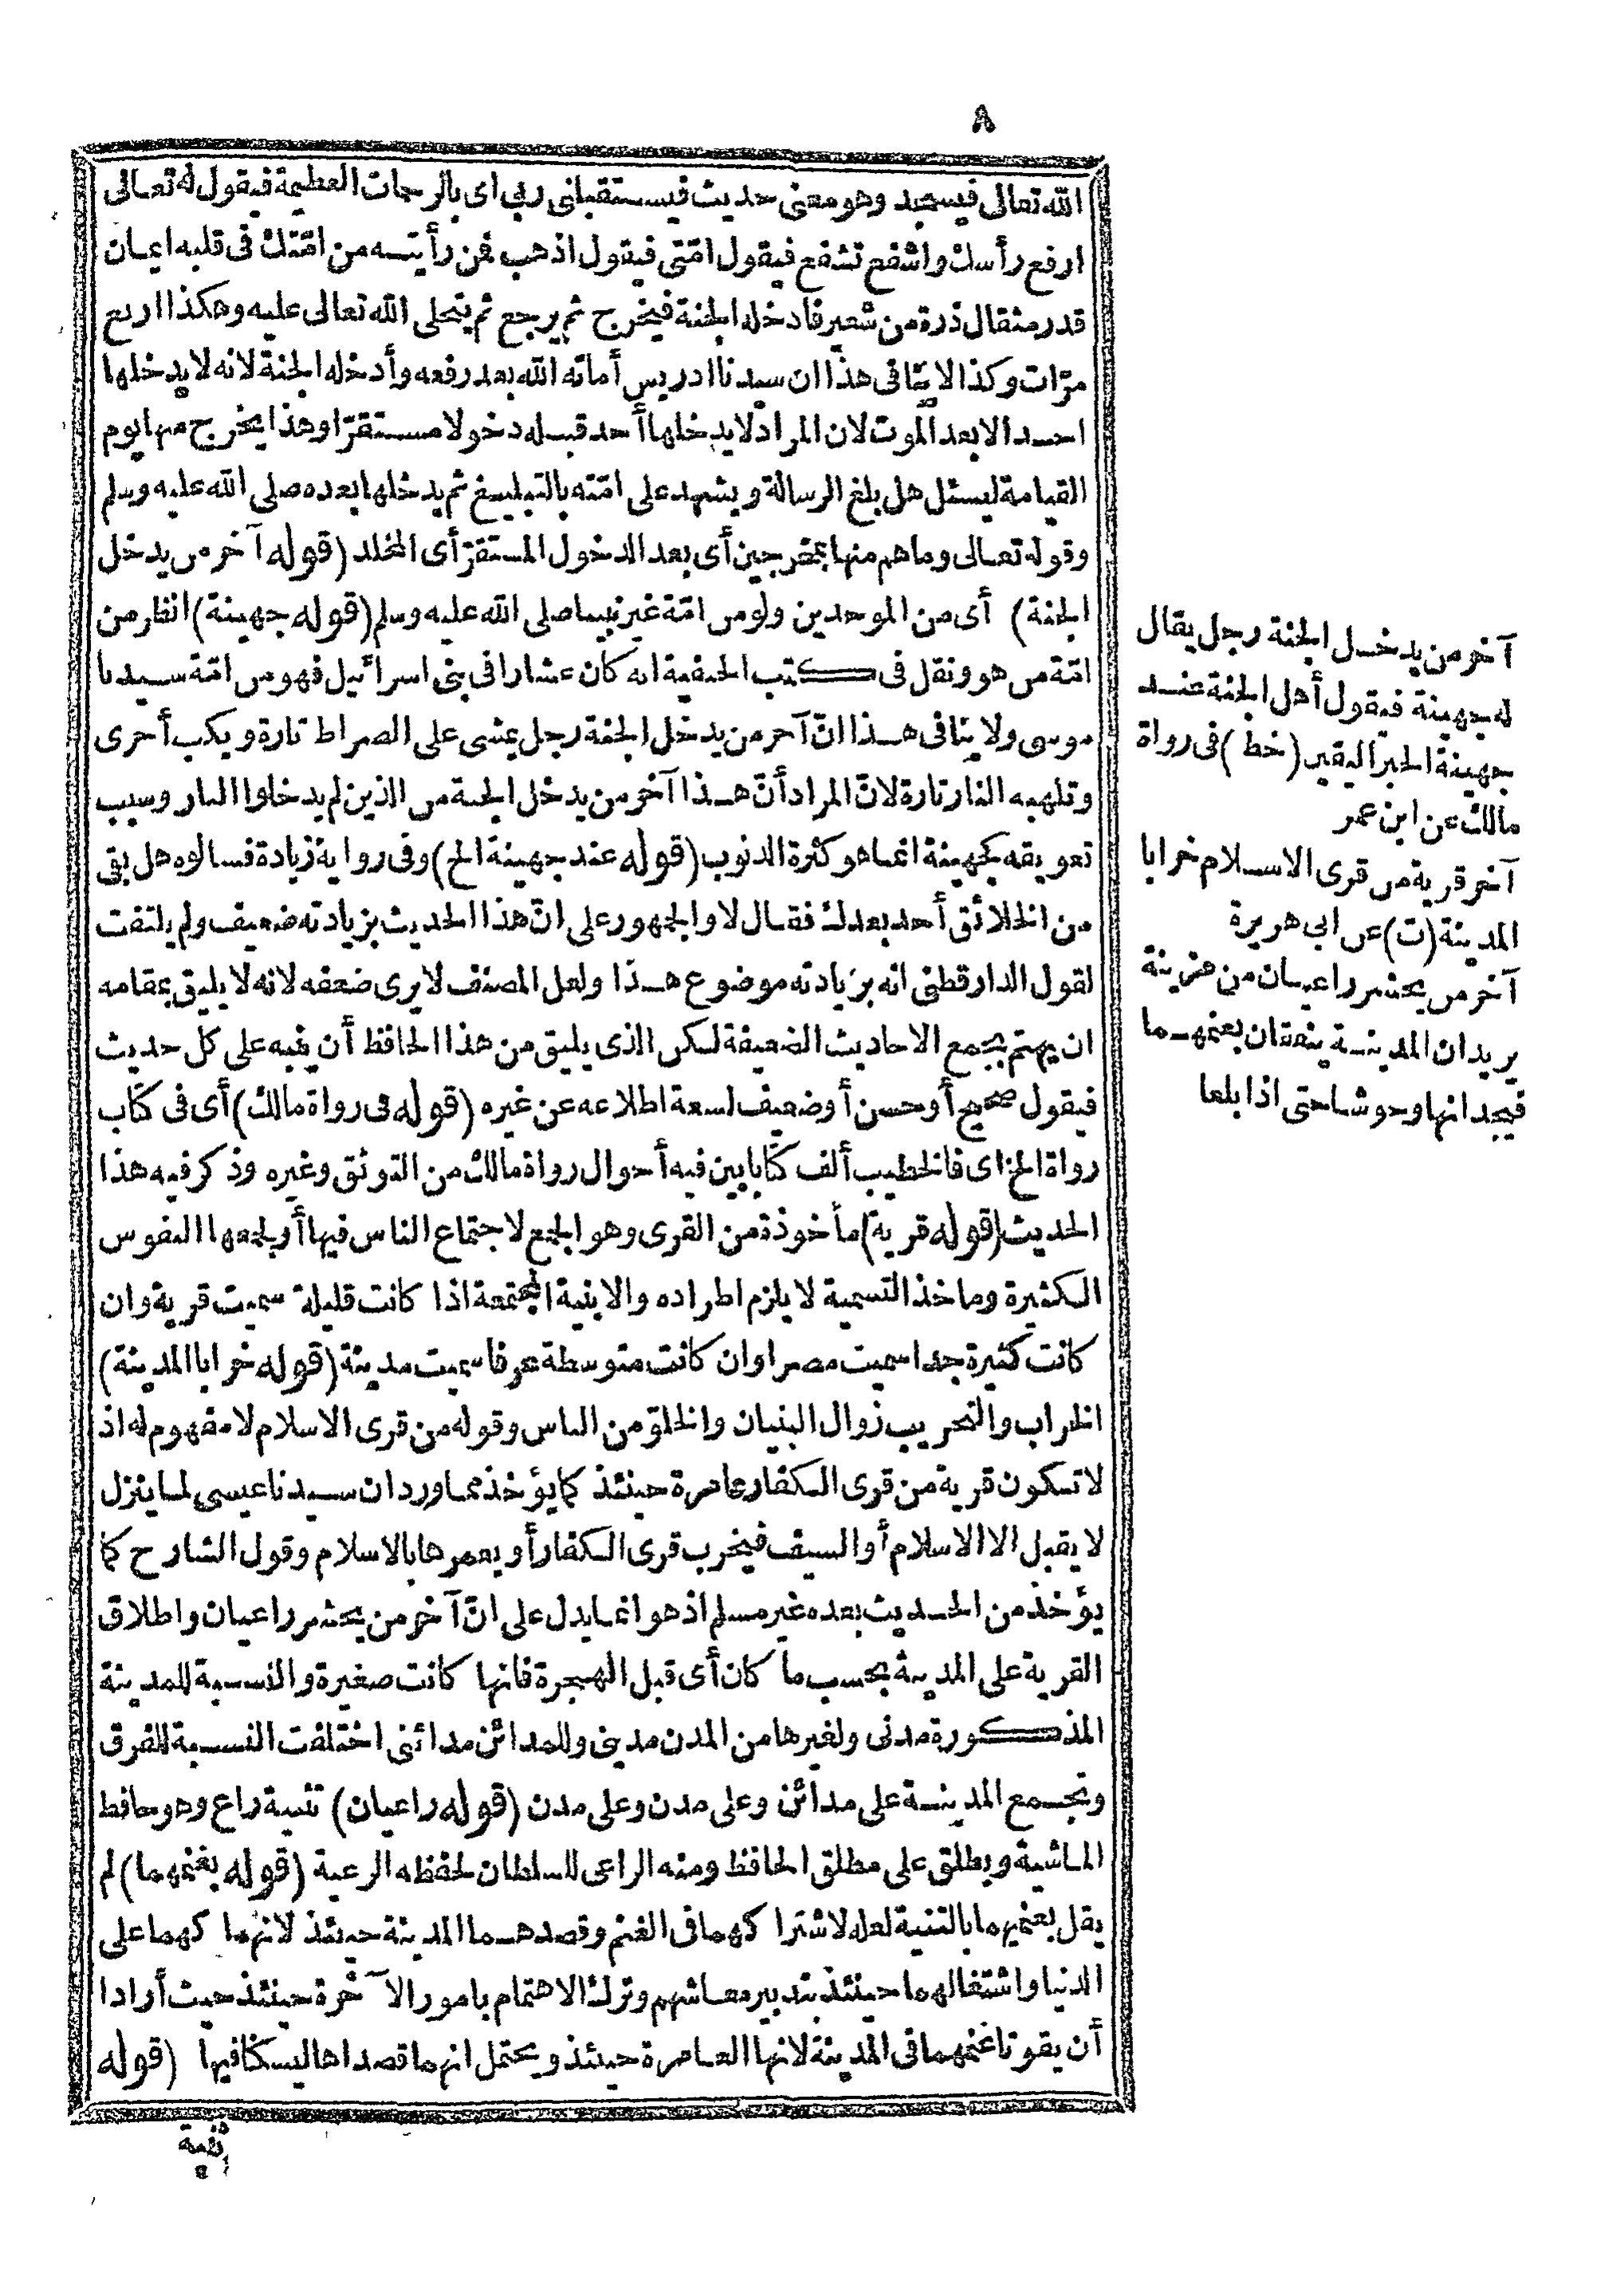 ٨
الله تعالى فيسجد وهو معنى حديث فيستقبلنى ربى اى بالرحمات العظيمة فيقول له تعالى
ارفع رأسك واشفع تشفع فيقول امّتى فيقول اذهب فمن رأيته من امّتك فى قلبه ايمان
قدر مثقال ذرة من شعير فادخله الجنة فيخرج ثم يرجع ثم يتجلى الله تعالى عليه وهكذا اربع
مرّات وكذا لا ينافى هذا ان سيدنا ادريس أماته الله بعد رفعه وأدخله الجنة لانه لا يدخلها
احد الا بعد الموت لان المراد لا يدخلها أحد قبله دخولا مستقرّا وهذا يخرج منها يوم
القيامة ليسئل هل بلغ الرسالة ويشهد على امّته بالتبليغ ثم يدخلها بعده صلى الله عليه وسلم
وقوله تعالى وما هم منها بمخرجين أى بعد الدخول المستقرّ أى المخلد (قوله آخر من يدخل
الجنة) أى من الموحدين ولو من امّة غير نبينا صلى الله عليه وسلم (قوله جهينة) انظر من
امّة من هو ونقل فى كتب الحنفية انه كان عشارا فى بنى اسرائيل فهو من امّة سيدنا
موسى ولا ينافى هذا انّ آخر من يدخل الجنة رجل يمشى على الصراط تارة ويكب أخرى
وتلهبه النار تارة لانّ المراد أنّ هذا آخر من يدخل الجنة من الذين لم يدخلوا النار وسبب
تعويقه كجهينة انما هو كثرة الذنوب (قوله عند جهينة الخ) وفى رواية زيادة فسالوه هل بقى
من الخلائق أحد بعدك فقال لا والجمهور على انّ هذا الحديث بزيادته ضعيف ولم يلتفت
لقول الدارقطنى انه بزيادته موضوع هذا ولعل المصنف لا يرى ضعفه لانه لا يليق بمقامه
ان يهتم بجمع الاحاديث الضعيفة لكن الذى يليق من هذا الحافظ أن ينبه على كل حديث
فيقول صحيح أو حسن أو ضعيف لسعة اطلاعه عن غيره (قوله فى رواة مالك) أى فى كتاب
رواة الخ اى فالخطيب ألف كتابا بين فيه أحوال رواة مالك من التوثق وغيره وذكر فيه هذا
الحديث (قوله قرية) مأخوذة من القرى وهو الجمع لاجتماع الناس فيها أو لجمعها النفوس
الكثيرة وماخذ التسمية لا يلزم اطراده والابنية المجتمعة اذا كانت قليلة سميت قرية وان
كانت كثيرة جدا سميت مصرا وان كانت متوسطة عرفا سميت مدينة (قوله خرابا المدينة)
الخراب والتخريب زوال البنيان والخلوّ من الناس وقوله من قرى الاسلام لا مفهوم له اذ
لا تكون قرية من قرى الكفار عامرة حينئذ كما يؤخذ مما ورد ان سيدنا عيسى لما ينزل
لا يقبل الا الاسلام أو السيف فيخرب قرى الكفار أو يعمرها بالاسلام وقول الشارح كما
يؤخذ من الحديث بعده غير مسلم اذ هو انما يدل على انّ آخر من يحشر راعيان واطلاق
القرية على المدينة بحسب ما كان أى قبل الهجرة فانها كانت صغيرة والنسبة للمدينة
المذكورة مدنى ولغيرها من المدن مدينى وللمدائن مدائنى اختلفت النسبة للفرق
وتجمع المدينة على مدائن وعلى مدن وعلى مدن (قوله راعيان) تثنية راع وهو حافظ
الماشية ويطلق على مطلق الحافظ ومنه الراعى للسلطان لحفظه الرعية (قوله بغنمهما) لم
يقل بغنميهما بالتثنية لعله لاشتراكهما فى الغنم وقصدهما المدينة حينئذ لانهما كهما على
الدنيا واشتغالهما حينئذ بتدبير معاشهم وترك الاهتمام بامور الآخرة حينئذ حيث أرادا
أن يقوتا غنمهما فى المدينة لانها العامرة حينئذ ويحتمل انهما قصداها ليسكنا فيها (قوله
ثنية
آخر من يدخل الجنة رجل يقال
له جهينة فيقول أهل الجنة عند
جهينة الخبر اليقين (خط) فى رواة
مالك عن ابن عمر
آخر قرية من قرى الاسلام خرابا
المدينة (ت) عن ابى هريرة
آخر من يحشر راعيان من مزينة
يريدان المدينة ينعقان بغنمهما
فيجدانها وحوشا حتى اذا بلغا